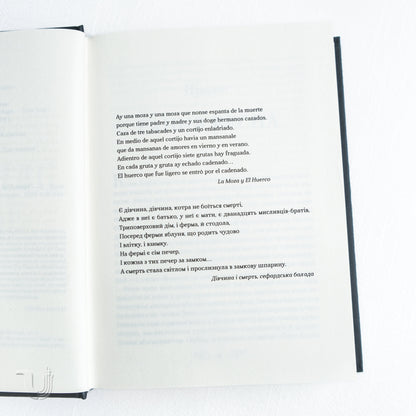 Ay una moza y una moza que nonse espanta de la muerte
porque tiene padre y madre y sus doge hermanos cazados.
Caza de tre tabacades y un cortijo enladriado.
En medio de aquel cortijo havia un mansanale
que da mansanas de amores en vierno y en verano.
Adientro de aquel cortijo siete grutas hay fraguada.
En cada gruta y gruta ay echado cadenado...
El huerco que fue ligero se entró por el cadenado.
La Moza y El Huerco
Є дівчина, дівчина, котра не боїться смерті,
Адже в неї є батько, у неї є мати, є дванадцять мисливців-братів,
Триповерховий дім, і ферма, й стодола,
Посеред ферми яблуня, що родить чудово
І влітку, і взимку.
На фермі є сім печер,
І кожна з тих печер за замком...
А смерть стала світлом і прослизнула в замкову шпарину.
Дівчина і смерть, сефардська балада